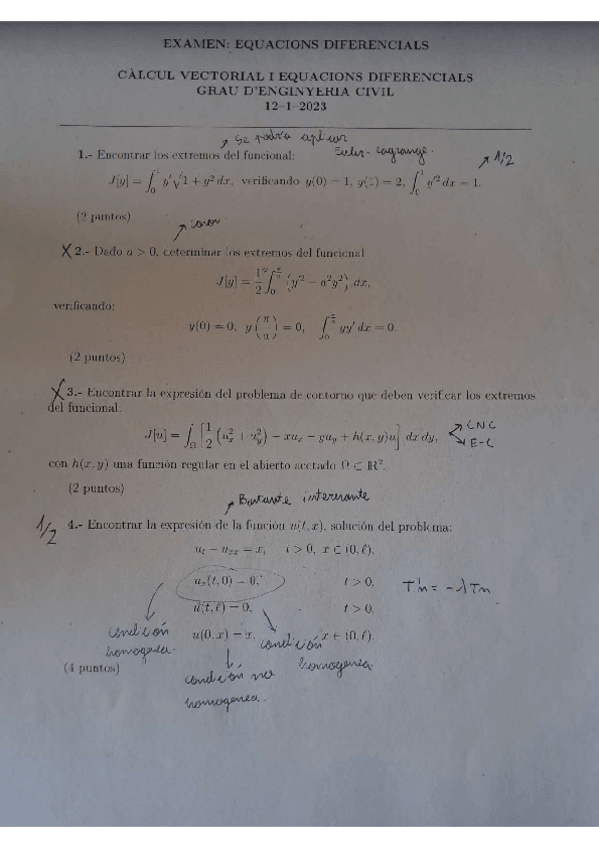 EXAMEN: EQUACIONS DIFERENCIALS
CÀLCUL VECTORIAL I EQUACIONS DIFERENCIALS
GRAU D'ENGINYERIA CIVIL
12-1-2023
Se podría aplicar
Euler-Lagrange.
1.- Encontrar los extremos del funcional:
1/2
J[y] = ∫₀¹ y'√1 + y² dx, verificando y(0) = 1, y(1) = 2, ∫₀¹ y'² dx = 1.
(2 puntos)
X 2.- Dado a > 0, determinar los extremos del funcional
J[y] = 1/2 ∫₀^{π/a} (y'² − a²y²) dx,
verificando:
y(0) = 0, y(π/a) = 0, ∫₀^{π/a} yy' dx = 0.
(2 puntos)
X 3.- Encontrar la expresión del problema de contorno que deben verificar los extremos
del funcional:
J[u] = ∫_Ω [1/2 (u²ₓ + u²ᵧ) − xuₓ − yuᵧ + h(x, y)u] dx dy,
CNC
E-C
con h(x, y) una función regular en el abierto acotado Ω ⊂ ℝ².
(2 puntos)
Bastante interesante
1/2 4.- Encontrar la expresión de la función u(t, x), solución del problema:
uₜ − uₓₓ = x, t > 0, x ∈ (0, ℓ),
uₓ(t, 0) = 0, t > 0, T'n = -λTn
u(t, ℓ) = 0, t > 0,
u(0, x) = x, x ∈ (0, ℓ).
condición
homogenea.
condición
homogenea.
(4 puntos)
condición no
homogenea.